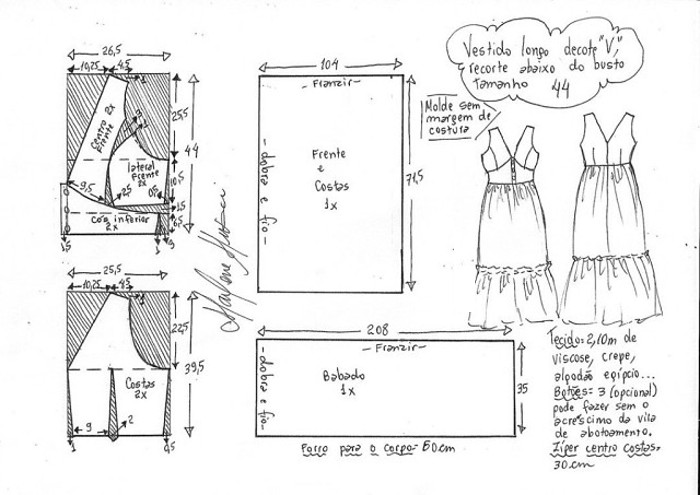 Vestido longo decote "V",
recorte abaixo do busto
Tamanho 44
Molde sem
margem de
costura
26,5
10,25
4,5
1
25,5
44
10,5
1,5
6,5
Centro
Frente
2x
3
2
lateral
Frente
2x
9,5
2,5
0,5
Cós inferior
2x
1,5
1
3
25,5
10,25
4,5
1
22,5
39,5
Costas
2x
9
2
1
0,5
104
-Franzir-
-dobra e fio-
Frente
e
Costas
1x
71,5
208
-Franzir-
-dobra e fio-
Babado
1x
35
Forro para o corpo- 50cm
Marlene Mukai
Tecido= 2,10m de
viscose, crepe,
algodão egípcio...
Botões= 3 (opcional)
pode fazer sem o
acréscimo da vila
de abotoamento.
Zíper centro costas=
30.cm